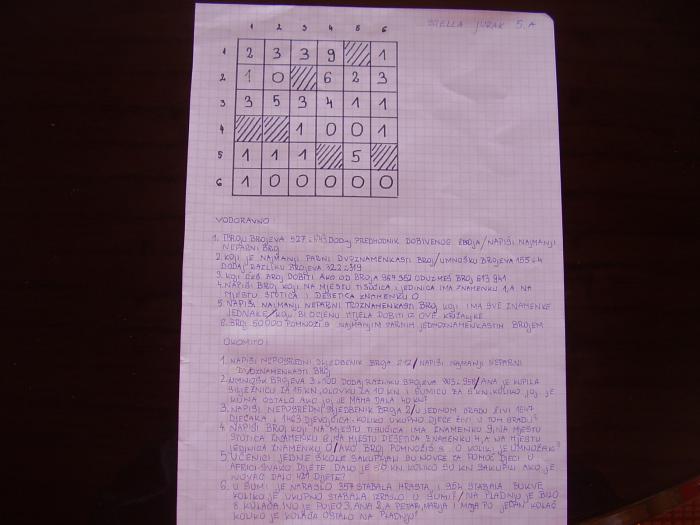 STELLA JURAK 5.A
1 2 3 4 5 6
1 2 3 3 9 1
2 1 0 6 2 3
3 3 5 3 4 1 1
4 1 0 0 1
5 1 1 1 5
6 1 0 0 0 0 0
VODORAVNO:
1. BROJEVA 527 DODAJ PREDHODNIK DOBIVENOG BROJA/NAPIŠI NAJMANJI
NEPARNI BROJ
2. KOJI JE NAJMANJI PARNI DVOZNAMENKASTI BROJ/UMNOŠKU BROJEVA 155 I 4
DODAJ RAZLIKU BROJEVA 322 I 319
3. KOJI ĆEŠ BROJ DOBITI AKO OD BROJA 967 352 ODUZMEŠ BROJ 613 941
4. NAPIŠI BROJ KOJI NA MJESTU TISUĆICA I JEDINICA IMA ZNAMENKU 1, A NA
MJESTU STOTICA I DESETICA ZNAMENKU 0
5. NAPIŠI NAJMANJI NEPARNI TROZNAMENKASTI BROJ KOJI IMA SVE ZNAMENKE
JEDNAKE/KOJU BI OCJENU HTJELA DOBITI IZ OVE KRIŽALJKE
6. BROJ 50000 POMNOŽI S NAJMANJIM PARNIM JEDNOZNAMENKASTIM BROJEM
OKOMITO:
1. NAPIŠI NEPOSREDNI SLJEDBENIK BROJA 212/NAPIŠI NAJMANJI NEPARNI
DVOZNAMENKASTI BROJ
2. UMNOŠKU BROJEVA 3 I 100 DODAJ RAZLIKU BROJEVA /ANA JE KUPILA
BILJEŽNICU ZA 15 KN, OLOVKU ZA 10 KN I GUMICU ZA 5 KN, KOLIKO JOJ JE
KUNA OSTALO AKO JOJ JE MAMA DALA 40 KN?
3. NAPIŠI NEPOSREDNI SLJEDBENIK BROJA 2/U JEDNOM GRADU ŽIVI
DJEČAKA I 1463 DJEVOJČICA. KOLIKO UKUPNO DJECE ŽIVI U TOM GRADU?
4. NAPIŠI BROJ KOJI NA MJESTU TISUĆICA IMA ZNAMENKU 9, NA MJESTU
STOTICA ZNAMENKU 6, NA MJESTU DESETICA ZNAMENKU 4, A NA MJESTU
JEDINICA ZNAMENKU 0/AKO BROJ POMNOŽIŠ S 0 KOLIKI JE UMNOŽAK?
5. UČENICI JEDNE ŠKOLE SAKUPLJALI SU NOVCE ZA POMOĆ DJECI U
AFRICI. SVAKO DIJETE DALO JE KN. KOLIKO SU KN SAKUPILI AKO JE
NOVAC DALO 421 DIJETE?
6. U ŠUMI JE NARASLO 357 STABALA HRASTA, I 954 STABALA BUKVE.
KOLIKO JE UKUPNO STABALA IZRASLO U ŠUMI?/NA PLADNJU JE BILO
8 KOLAČA. IVO JE POJEO 3, ANA 2, A PETAR, MARIJA I MAJA PO JEDAN KOLAČ
KOLIKO JE KOLAČA OSTALO NA PLADNJU?